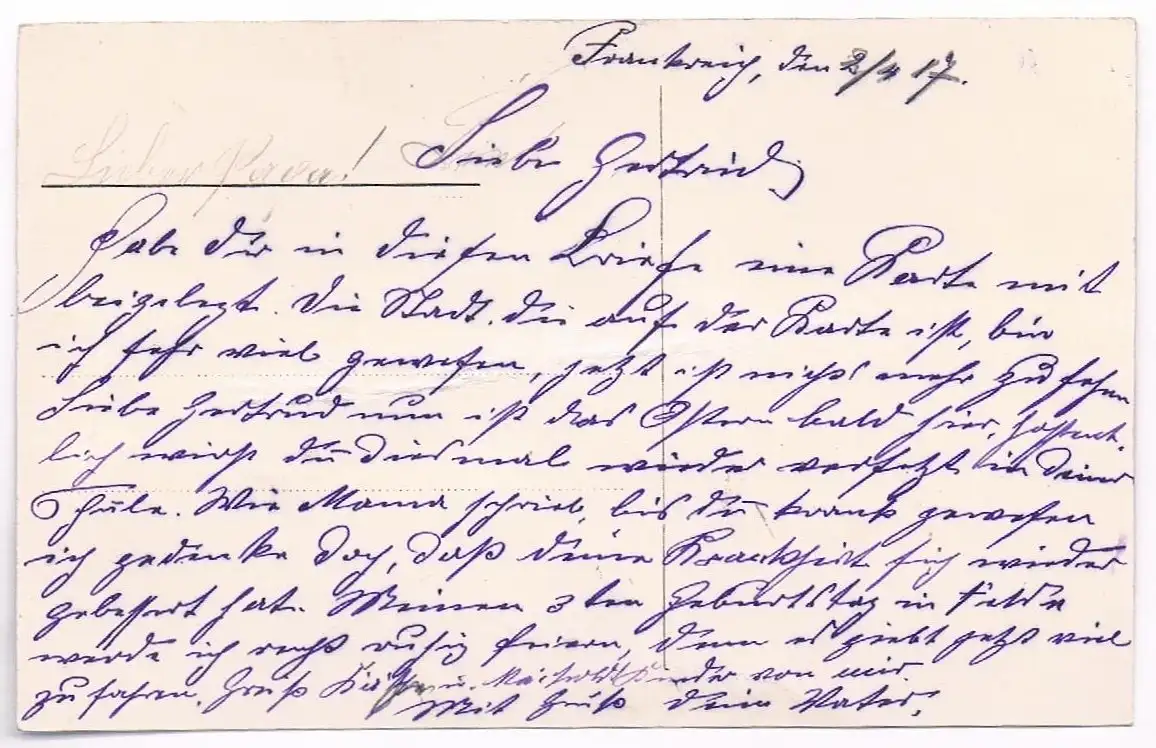 Frankreich, den 2/4 17.
Lieber Papa!
Liebe Gertrud,
Habe dir in diesen Briefe eine Karte mit
beigelegt. Die Stadt. die auf der Karte ist, bin
ich sehr viel gewesen, jetzt ist nichts mehr zu sehen
Liebe Gertrud nun ist das Ostern bald hier, hoffent-
lich wirst du diesmal wieder versetzt in deine
Schule. Wie Mama schrieb, bis du krank gewesen
ich gedenke doch, daß deine Krankheit sich wieder
gebessert hat. Meinen 3ten Geburtstag in Felde
werde ich recht ruhig feiern, denn es giebt jetzt viel
zu fahren. Gruß u. Kinder von mir.
Mit Gruß dein Vater.